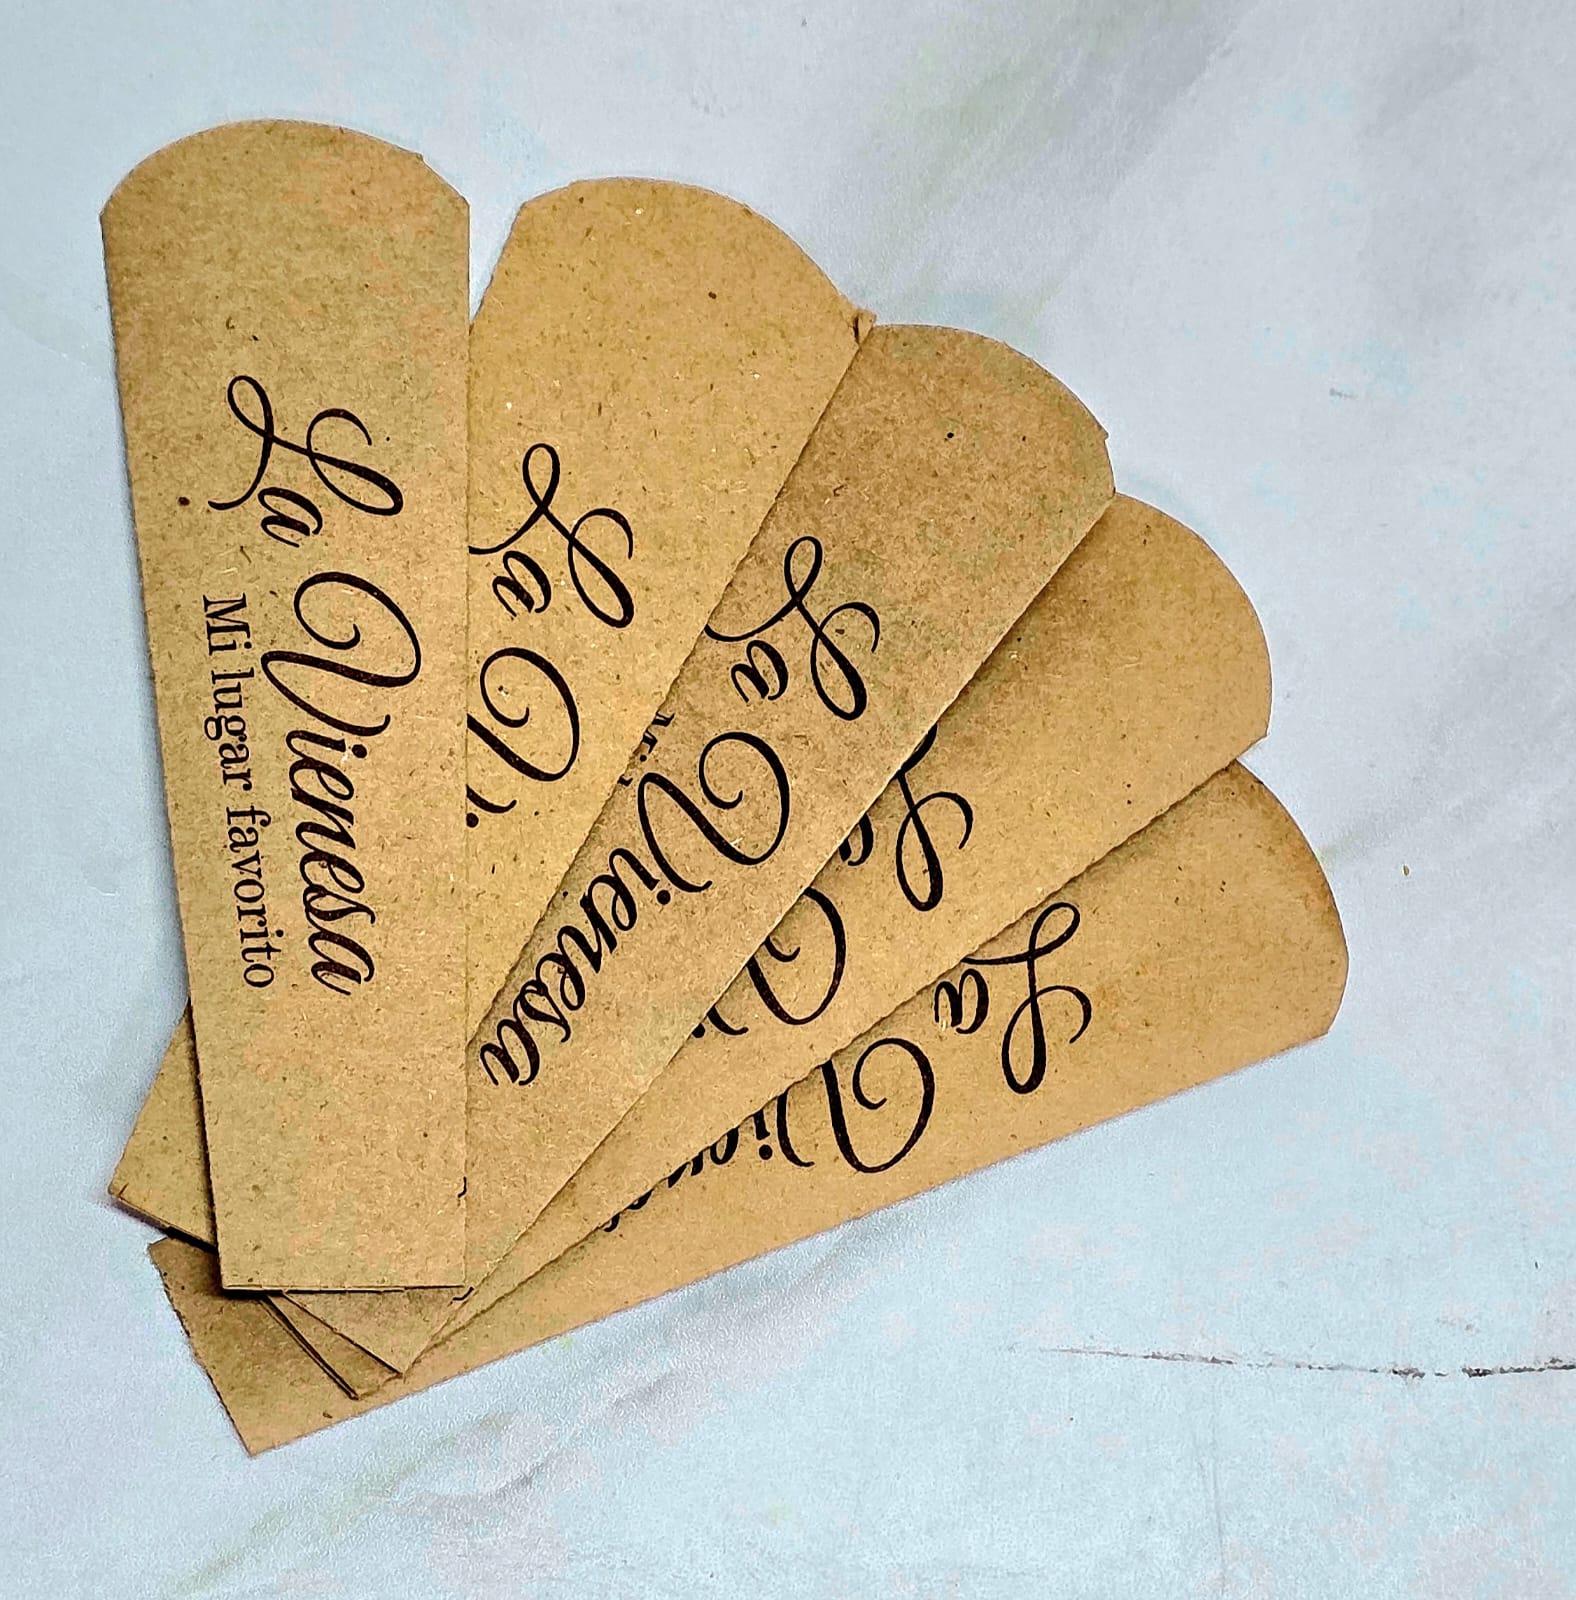 La Vienesa
Mi lugar favorito
La Vi
La Vienesa
Mi
La Vi
La Viene